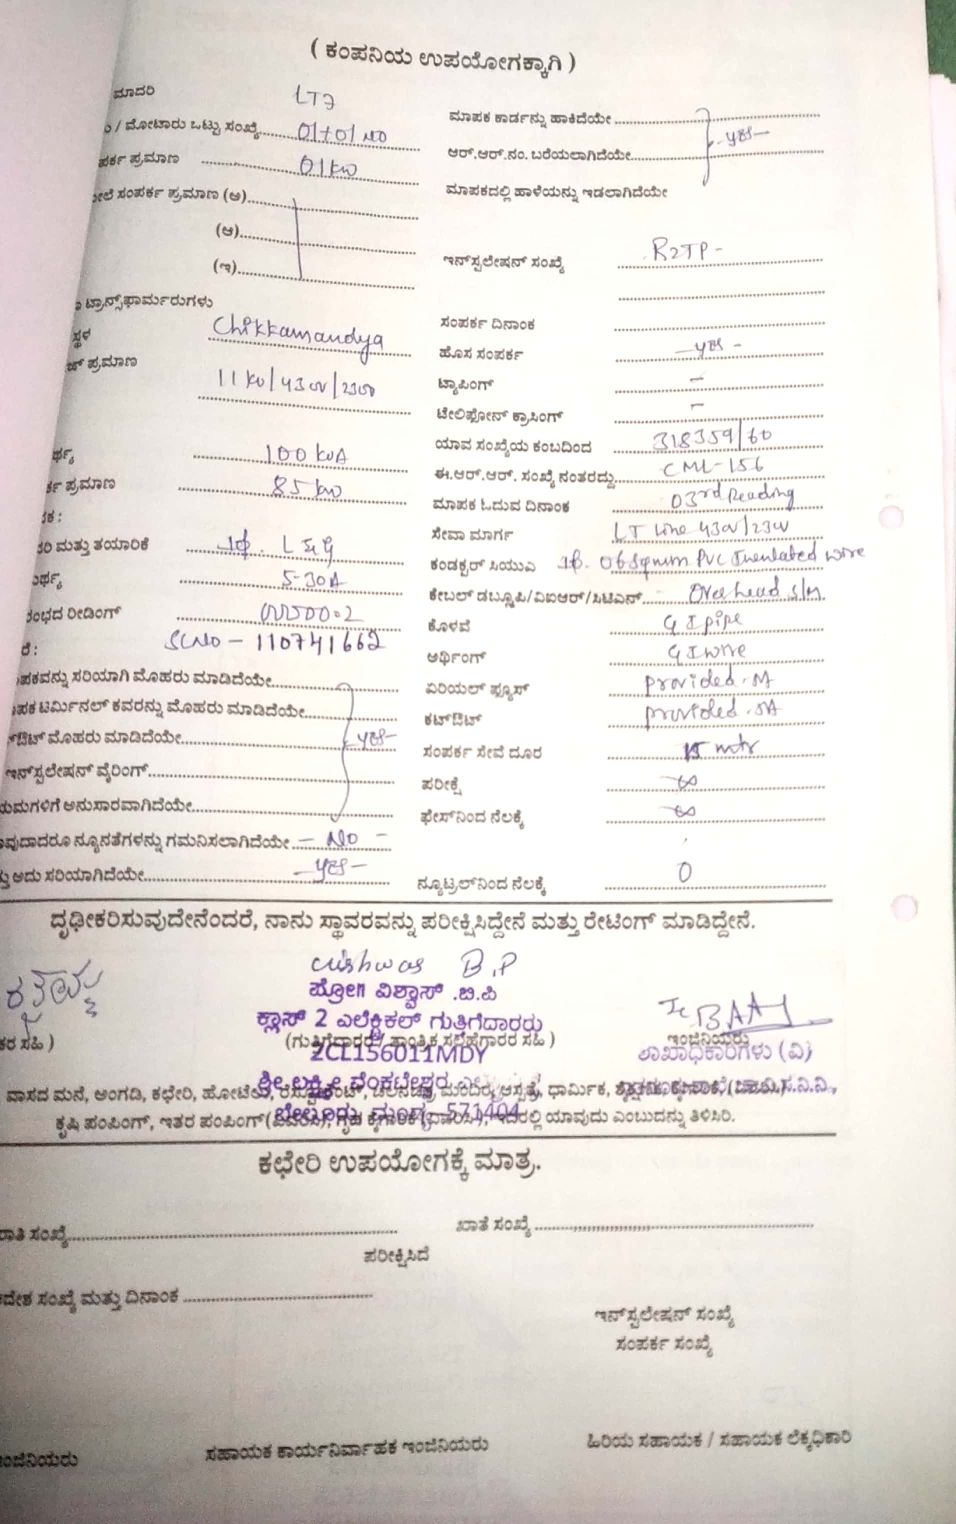 ( ಕಂಪನಿಯ ಉಪಯೋಗಕ್ಕಾಗಿ )
ಮಾದರಿ LT7
/ ಮೋಟಾರು ಒಟ್ಟು ಸಂಖ್ಯೆ 01+01 NO
ಪರ್ಕ ಪ್ರಮಾಣ 01 kw
ಸಂಪರ್ಕ ಪ್ರಮಾಣ (ಅ)
(ಆ)
(ಇ)
ಟ್ರಾನ್ಸ್‌ಫಾರ್ಮರುಗಳು
ಸ್ಥಳ Chikkamandya
ಪ್ರಮಾಣ
11 kv/430v/230v
100 kvA
ರ್ಕ ಪ್ರಮಾಣ 85 kw
ಕ :
ಮತ್ತು ತಯಾರಿಕೆ 1ф. L & G
5-30A
ರಂಭದ ರೀಡಿಂಗ್ 00500.2
SLNo - 110741662
ಪಕವನ್ನು ಸರಿಯಾಗಿ ಮೊಹರು ಮಾಡಿದೆಯೇ
ಪಕ ಟರ್ಮಿನಲ್ ಕವರನ್ನು ಮೊಹರು ಮಾಡಿದೆಯೇ
ಔಟ್ ಮೊಹರು ಮಾಡಿದೆಯೇ yes-
ಇನ್‌ಸ್ಟಲೇಷನ್ ವೈರಿಂಗ್
ಯಮಗಳಿಗೆ ಅನುಸಾರವಾಗಿದೆಯೇ
ಾವುದಾದರೂ ನ್ಯೂನತೆಗಳನ್ನು ಗಮನಿಸಲಾಗಿದೆಯೇ - NO -
ತ್ತು ಅದು ಸರಿಯಾಗಿದೆಯೇ -yes-
ಮಾಪಕ ಕಾರ್ಡನ್ನು ಹಾಕಿದೆಯೇ
ಆರ್.ಆರ್.ನಂ. ಬರೆಯಲಾಗಿದೆಯೇ -yes-
ಮಾಪಕದಲ್ಲಿ ಹಾಳೆಯನ್ನು ಇಡಲಾಗಿದೆಯೇ
ಇನ್‌ಸ್ಟಲೇಷನ್ ಸಂಖ್ಯೆ R2TP-
ಸಂಪರ್ಕ ದಿನಾಂಕ
ಹೊಸ ಸಂಪರ್ಕ -yes-
ಟ್ಯಾಪಿಂಗ್ -
ಟೆಲಿಫೋನ್ ಕ್ರಾಸಿಂಗ್ -
ಯಾವ ಸಂಖ್ಯೆಯ ಕಂಬದಿಂದ 318359/60
ಈ.ಆರ್.ಆರ್. ಸಂಖ್ಯೆ ನಂತರದ್ದು CML-156
ಮಾಪಕ ಓದುವ ದಿನಾಂಕ 03rd Reading
ಸೇವಾ ಮಾರ್ಗ LT line 430v/230v
ಕಂಡಕ್ಟರ್ ಸಿಯುಎ 1ф. 06 sqmm PVC Insulated wire
ಕೇಬಲ್ ಡಬ್ಲ್ಯೂಪಿ/ವಿಐಆರ್/ಸಿಟಿಎಸ್ Overhead S/M
ಕೊಳವೆ G I pipe
ಅರ್ಥಿಂಗ್ G I wire
ಏರಿಯಲ್ ಫ್ಯೂಸ್ provided.
ಕಟ್ಔಟ್ provided.
ಸಂಪರ್ಕ ಸೇವೆ ದೂರ 15 mtr
ಪರೀಕ್ಷೆ ∞
ಫೇಸ್‌ನಿಂದ ನೆಲಕ್ಕೆ ∞
ನ್ಯೂಟ್ರಲ್‌ನಿಂದ ನೆಲಕ್ಕೆ 0
ದೃಢೀಕರಿಸುವುದೇನೆಂದರೆ, ನಾನು ಸ್ಥಾವರವನ್ನು ಪರೀಕ್ಷಿಸಿದ್ದೇನೆ ಮತ್ತು ರೇಟಿಂಗ್ ಮಾಡಿದ್ದೇನೆ.
vishwas B.P
ವಿಶ್ವಾಸ್ .ಬಿ.ಪಿ
ಕ್ಲಾಸ್ 2 ಎಲೆಕ್ಟ್ರಿಕಲ್ ಗುತ್ತಿಗೆದಾರರು
ಕರ ಸಹಿ ) (ಗುತ್ತಿಗೆದಾರರ / ತಾಂತ್ರಿಕ ಸಲಹೆಗಾರರ ಸಹಿ ) ಇಂಜಿನಿಯರು
2CL156011MDY ಶಾಖಾಧಿಕಾರಿಗಳು (ವಿ)
ಶ್ರೀ ಲಕ್ಷ್ಮೀ ವೆಂಕಟೇಶ್ವರ
ವಾಸದ ಮನೆ, ಅಂಗಡಿ, ಕಛೇರಿ, ಹೋಟೆಲು, ರೆಸ್ಟೋರೆಂಟ್, ಚಲನಚಿತ್ರ ಮಂದಿರ, ಆಸ್ಪತ್ರೆ, ಧಾರ್ಮಿಕ,
ಬೇಲೂರು, ಮಂಡ್ಯ- 571404
ಕೃಷಿ ಪಂಪಿಂಗ್, ಇತರ ಪಂಪಿಂಗ್(ವಿವರಿಸಿ), ಗೃಹ ಕೈಗಾರಿಕೆ(ವಿವರಿಸಿ), ಇದರಲ್ಲಿ ಯಾವುದು ಎಂಬುದನ್ನು ತಿಳಿಸಿರಿ.
ಕಛೇರಿ ಉಪಯೋಗಕ್ಕೆ ಮಾತ್ರ.
ಸಂಖ್ಯೆ ಖಾತೆ ಸಂಖ್ಯೆ
ಪರೀಕ್ಷಿಸಿದೆ
ದೇಶ ಸಂಖ್ಯೆ ಮತ್ತು ದಿನಾಂಕ
ಇನ್‌ಸ್ಟಲೇಷನ್ ಸಂಖ್ಯೆ
ಸಂಪರ್ಕ ಸಂಖ್ಯೆ
ಂಜಿನಿಯರು ಸಹಾಯಕ ಕಾರ್ಯನಿರ್ವಾಹಕ ಇಂಜಿನಿಯರು ಹಿರಿಯ ಸಹಾಯಕ / ಸಹಾಯಕ ಲೆಕ್ಕಾಧಿಕಾರಿ